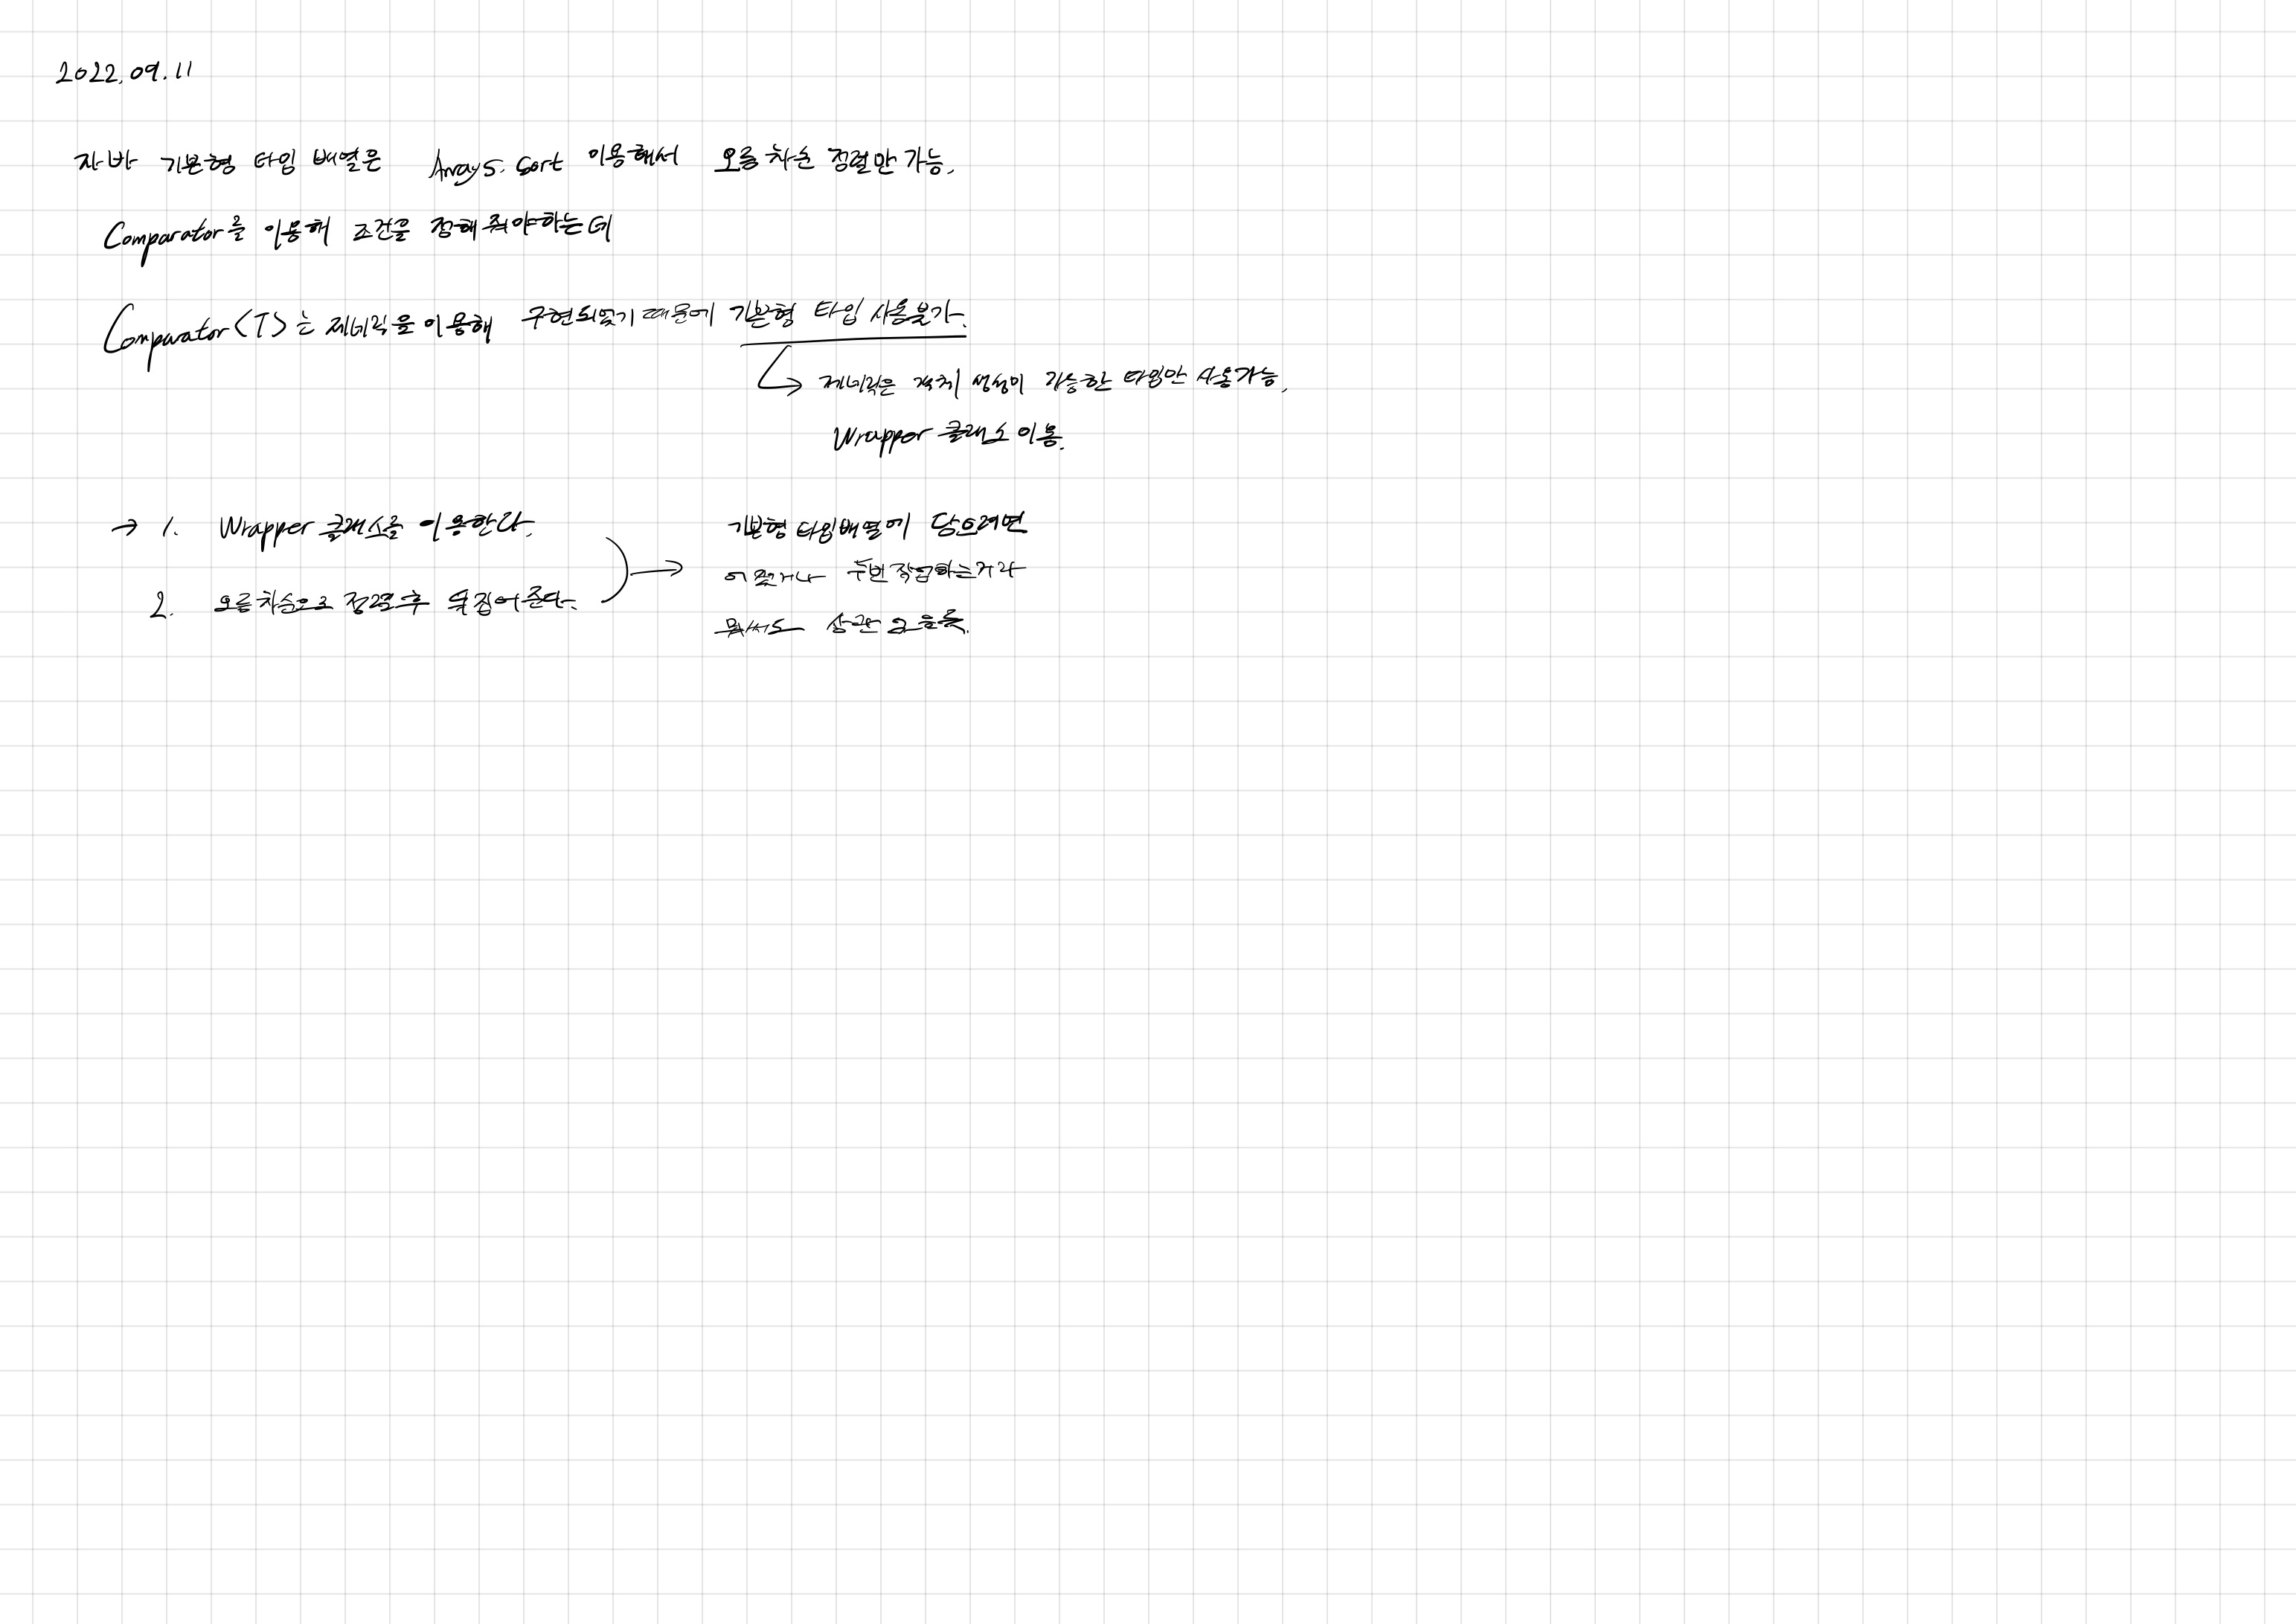 2022.09.11
자바 기본형 타입 배열은 Arrays.sort 이용해서 오름차순 정렬만 가능.
Comparator를 이용해 조건을 정해줘야하는데
Comparator<T>는 제네릭을 이용해 구현되있기 때문에 기본형 타입 사용불가.
→ 제네릭은 객체 생성이 가능한 타입만 사용가능.
Wrapper 클래스 이용.
→ 1. Wrapper 클래스를 이용한다.
2. 오름차순으로 정렬 후 뒤집어준다.
→ 기본형 타입배열에 담으려면
어쨌거나 두번 작업하는거라
뭘써도 상관 없을듯.